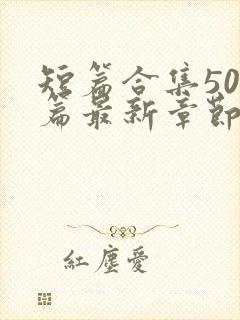 短篇合集50
篇最新章節
紅塵愛